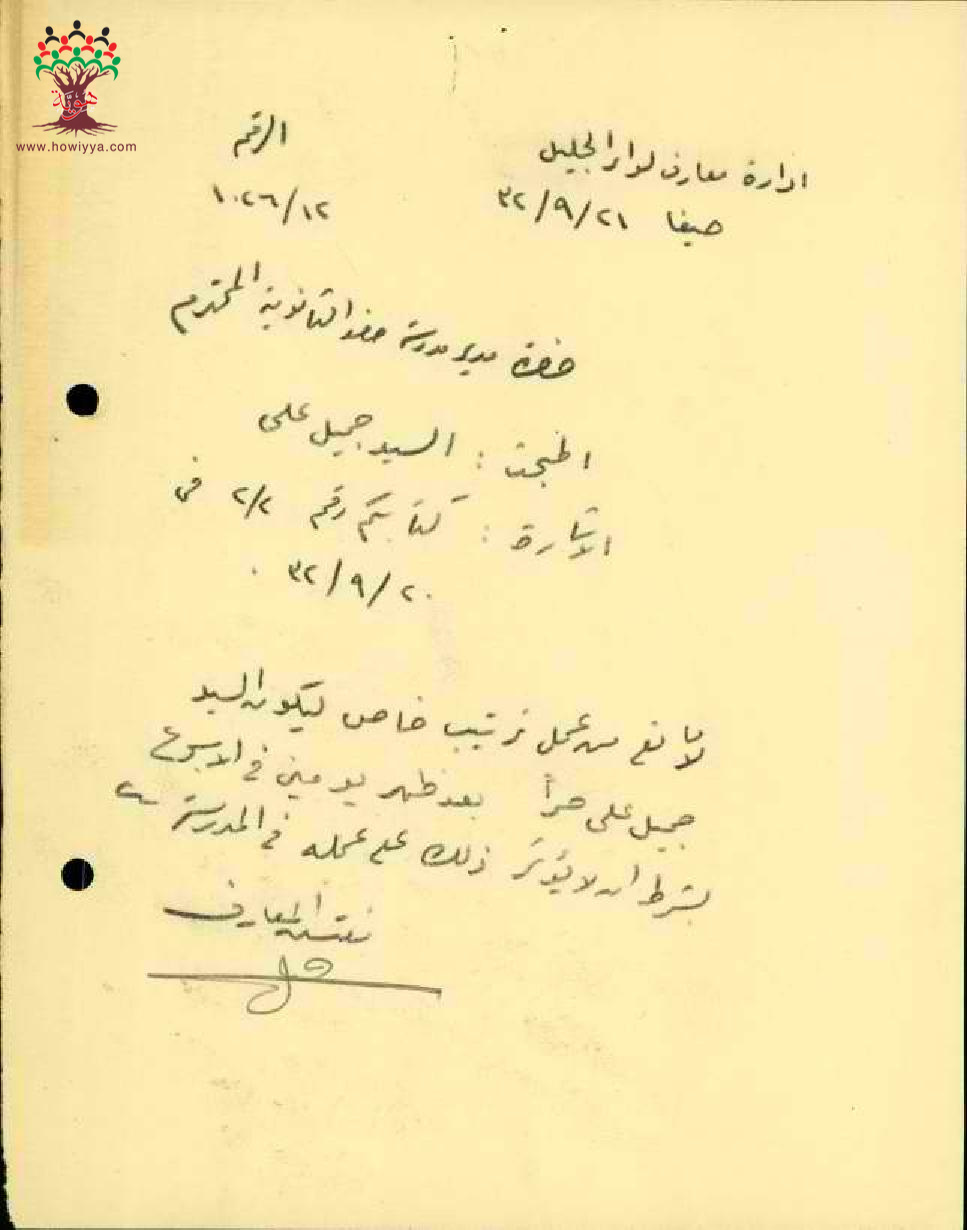 هوية
www.howiyya.com
ادارة معارف لواء الجليل
الرقم
حيفا ٣٢/٩/٢١
١٠٢٦/١٢
حضرة مدير مدرسة صفد الثانوية المحترم
المبحث : السيد جميل علي
الاشارة : كتابكم رقم ٢/٢ في
٣٢/٩/٢٠ .
لا مانع من عمل ترتيب خاص ليكون السيد
جميل علي حراً بعد ظهر يومين في الاسبوع
بشرط ان لا يؤثر ذلك على عمله في المدرسة
مفتش المعارف